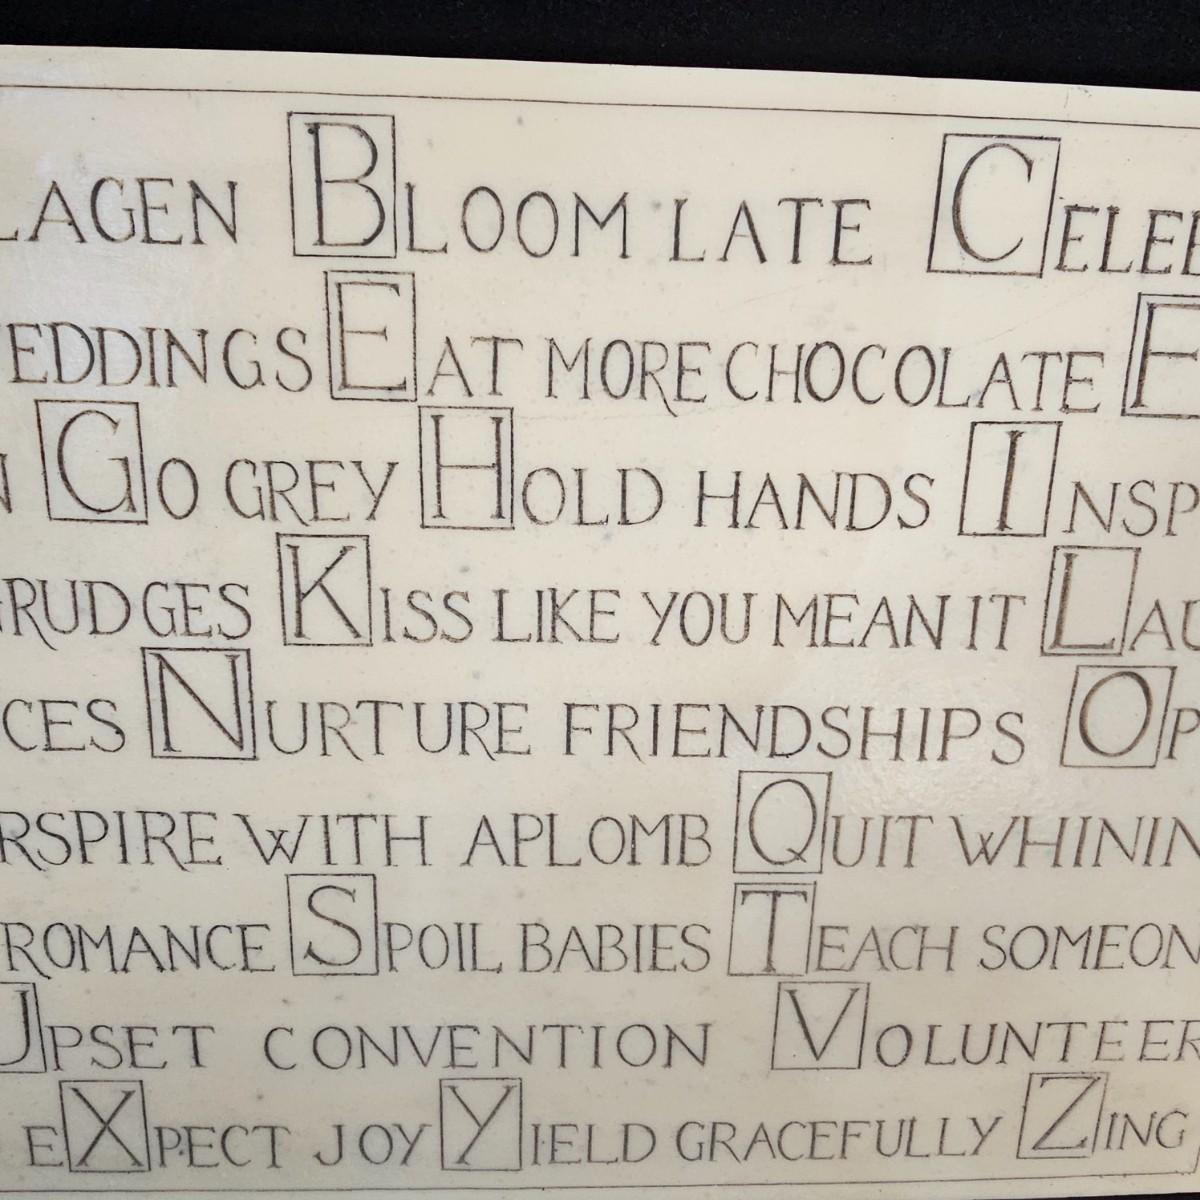 LAGEN BLOOM LATE CELEB
EDDINGS EAT MORE CHOCOLATE F
N GO GREY HOLD HANDS INSP
GRUDGES KISS LIKE YOU MEAN IT LAU
CES NURTURE FRIENDSHIPS OP
RSPIRE WITH APLOMB QUIT WHININ
ROMANCE SPOIL BABIES TEACH SOMEON
UPSET CONVENTION VOLUNTEER
EXPECT JOY YIELD GRACEFULLY ZING